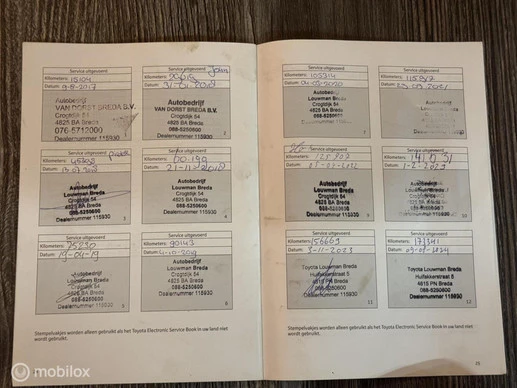 Service uitgevoerd
Kilometers: 15104
Datum: 9-8-2017
Autobedrijf
VAN DORST BREDA B.V.
Crogtdijk 54
4825 BA Breda
076-5712000
Dealernummer 115930
1
Service uitgevoerd
Kilometers:
Datum: 31-01-2018
Autobedrijf
VAN DORST BREDA B.V.
Crogtdijk 54
4825 BA Breda
088-6250600
Dealernummer 115930
2
Service uitgevoerd
Kilometers: 45808
Datum:
Autobedrijf
Louwman Breda
Crogtdijk 54
4825 BA Breda
088-6250600
Dealernummer 115930
3
Service uitgevoerd
Kilometers: 60.199
Datum: 21-11-2018
Autobedrijf
Louwman Breda
Crogtdijk 54
4825 BA Breda
088-6250600
Dealernummer 115930
4
Service uitgevoerd
Kilometers: 75230
Datum: 19-04-19
Autobedrijf
Louwman Breda
Crogtdijk 54
4825 BA Breda
088-6250600
Dealernummer 115930
5
Service uitgevoerd
Kilometers: 90143
Datum: -10-2019
Autobedrijf
Louwman Breda
Crogtdijk 54
4825 BA Breda
088-6250600
Dealernummer 115930
6
Stempelvakjes worden alleen gebruikt als het Toyota Electronic Service Book in uw land niet
wordt gebruikt.
Service uitgevoerd
Kilometers: 105314
Datum:
Autobedrijf
Louwman Breda
Crogtdijk 54
4825 BA Breda
088-6250600
Dealernummer 115930
7
Service uitgevoerd
Kilometers:
Datum:
Autobedrijf
Louwman Breda
Crogtdijk 54
4825 BA Breda
088-6250600
Dealernummer 115930
8
Service uitgevoerd
Kilometers:
Datum:
Autobedrijf
Louwman Breda
Crogtdijk 54
4825 BA Breda
088-6250600
Dealernummer 115930
9
Service uitgevoerd
Kilometers:
Datum: 1-2-2023
Autobedrijf
Louwman Breda
Crogtdijk 54
4825 BA Breda
088-6250600
Dealernummer 115930
10
Service uitgevoerd
Kilometers: 156669
Datum: 3-11-2023
Toyota Louwman Breda
4815 PN Breda
088-6250600
Dealernummer 115930
11
Service uitgevoerd
Kilometers: 173341
Datum:
Toyota Louwman Breda
4815 PN Breda
088-6250600
Dealernummer 115930
12
Stempelvakjes worden alleen gebruikt als het Toyota Electronic Service Book in uw land niet
wordt gebruikt.
mobilox